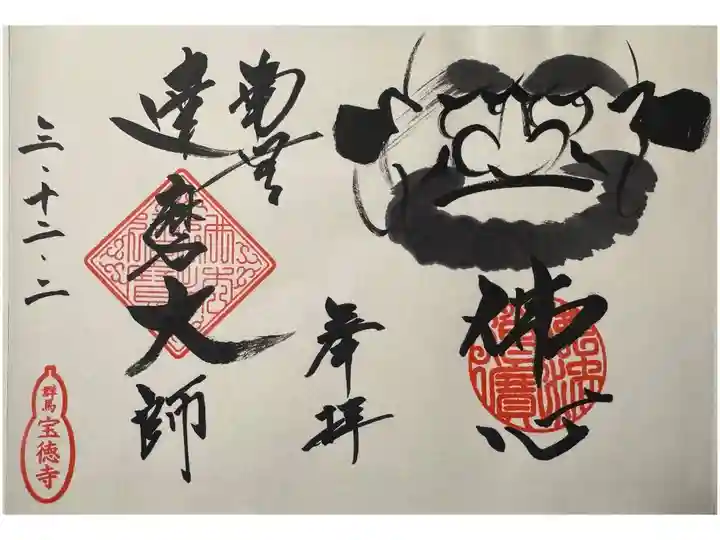 佛心
奉拝
南無
達磨大師
三・十二・二
群馬
宝徳寺